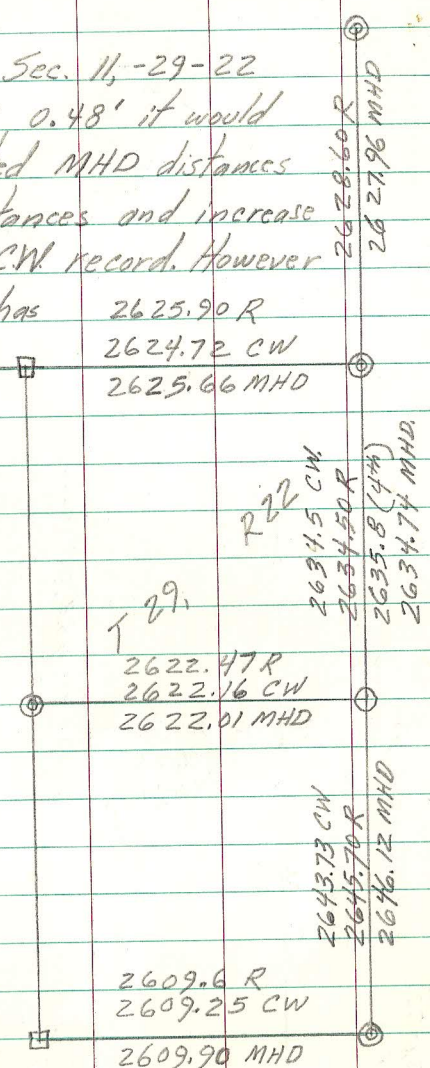 Sec. 11, -29-22
0.48' it would
ed MHD distances
tances and increase
C.W. record. However
has
2628.60 R
2627.96 MHD
2625.90 R
2624.72 CW
2625.66 MHD
R 22
T 29.
2634.5 CW.
2634.50 R
2635.8 (4th)
2634.74 MHD.
2622.47 R
2622.16 CW
2622.01 MHD
2643.73 CW
2645.70 R
2646.12 MHD
2609.6 R
2609.25 CW
2609.90 MHD